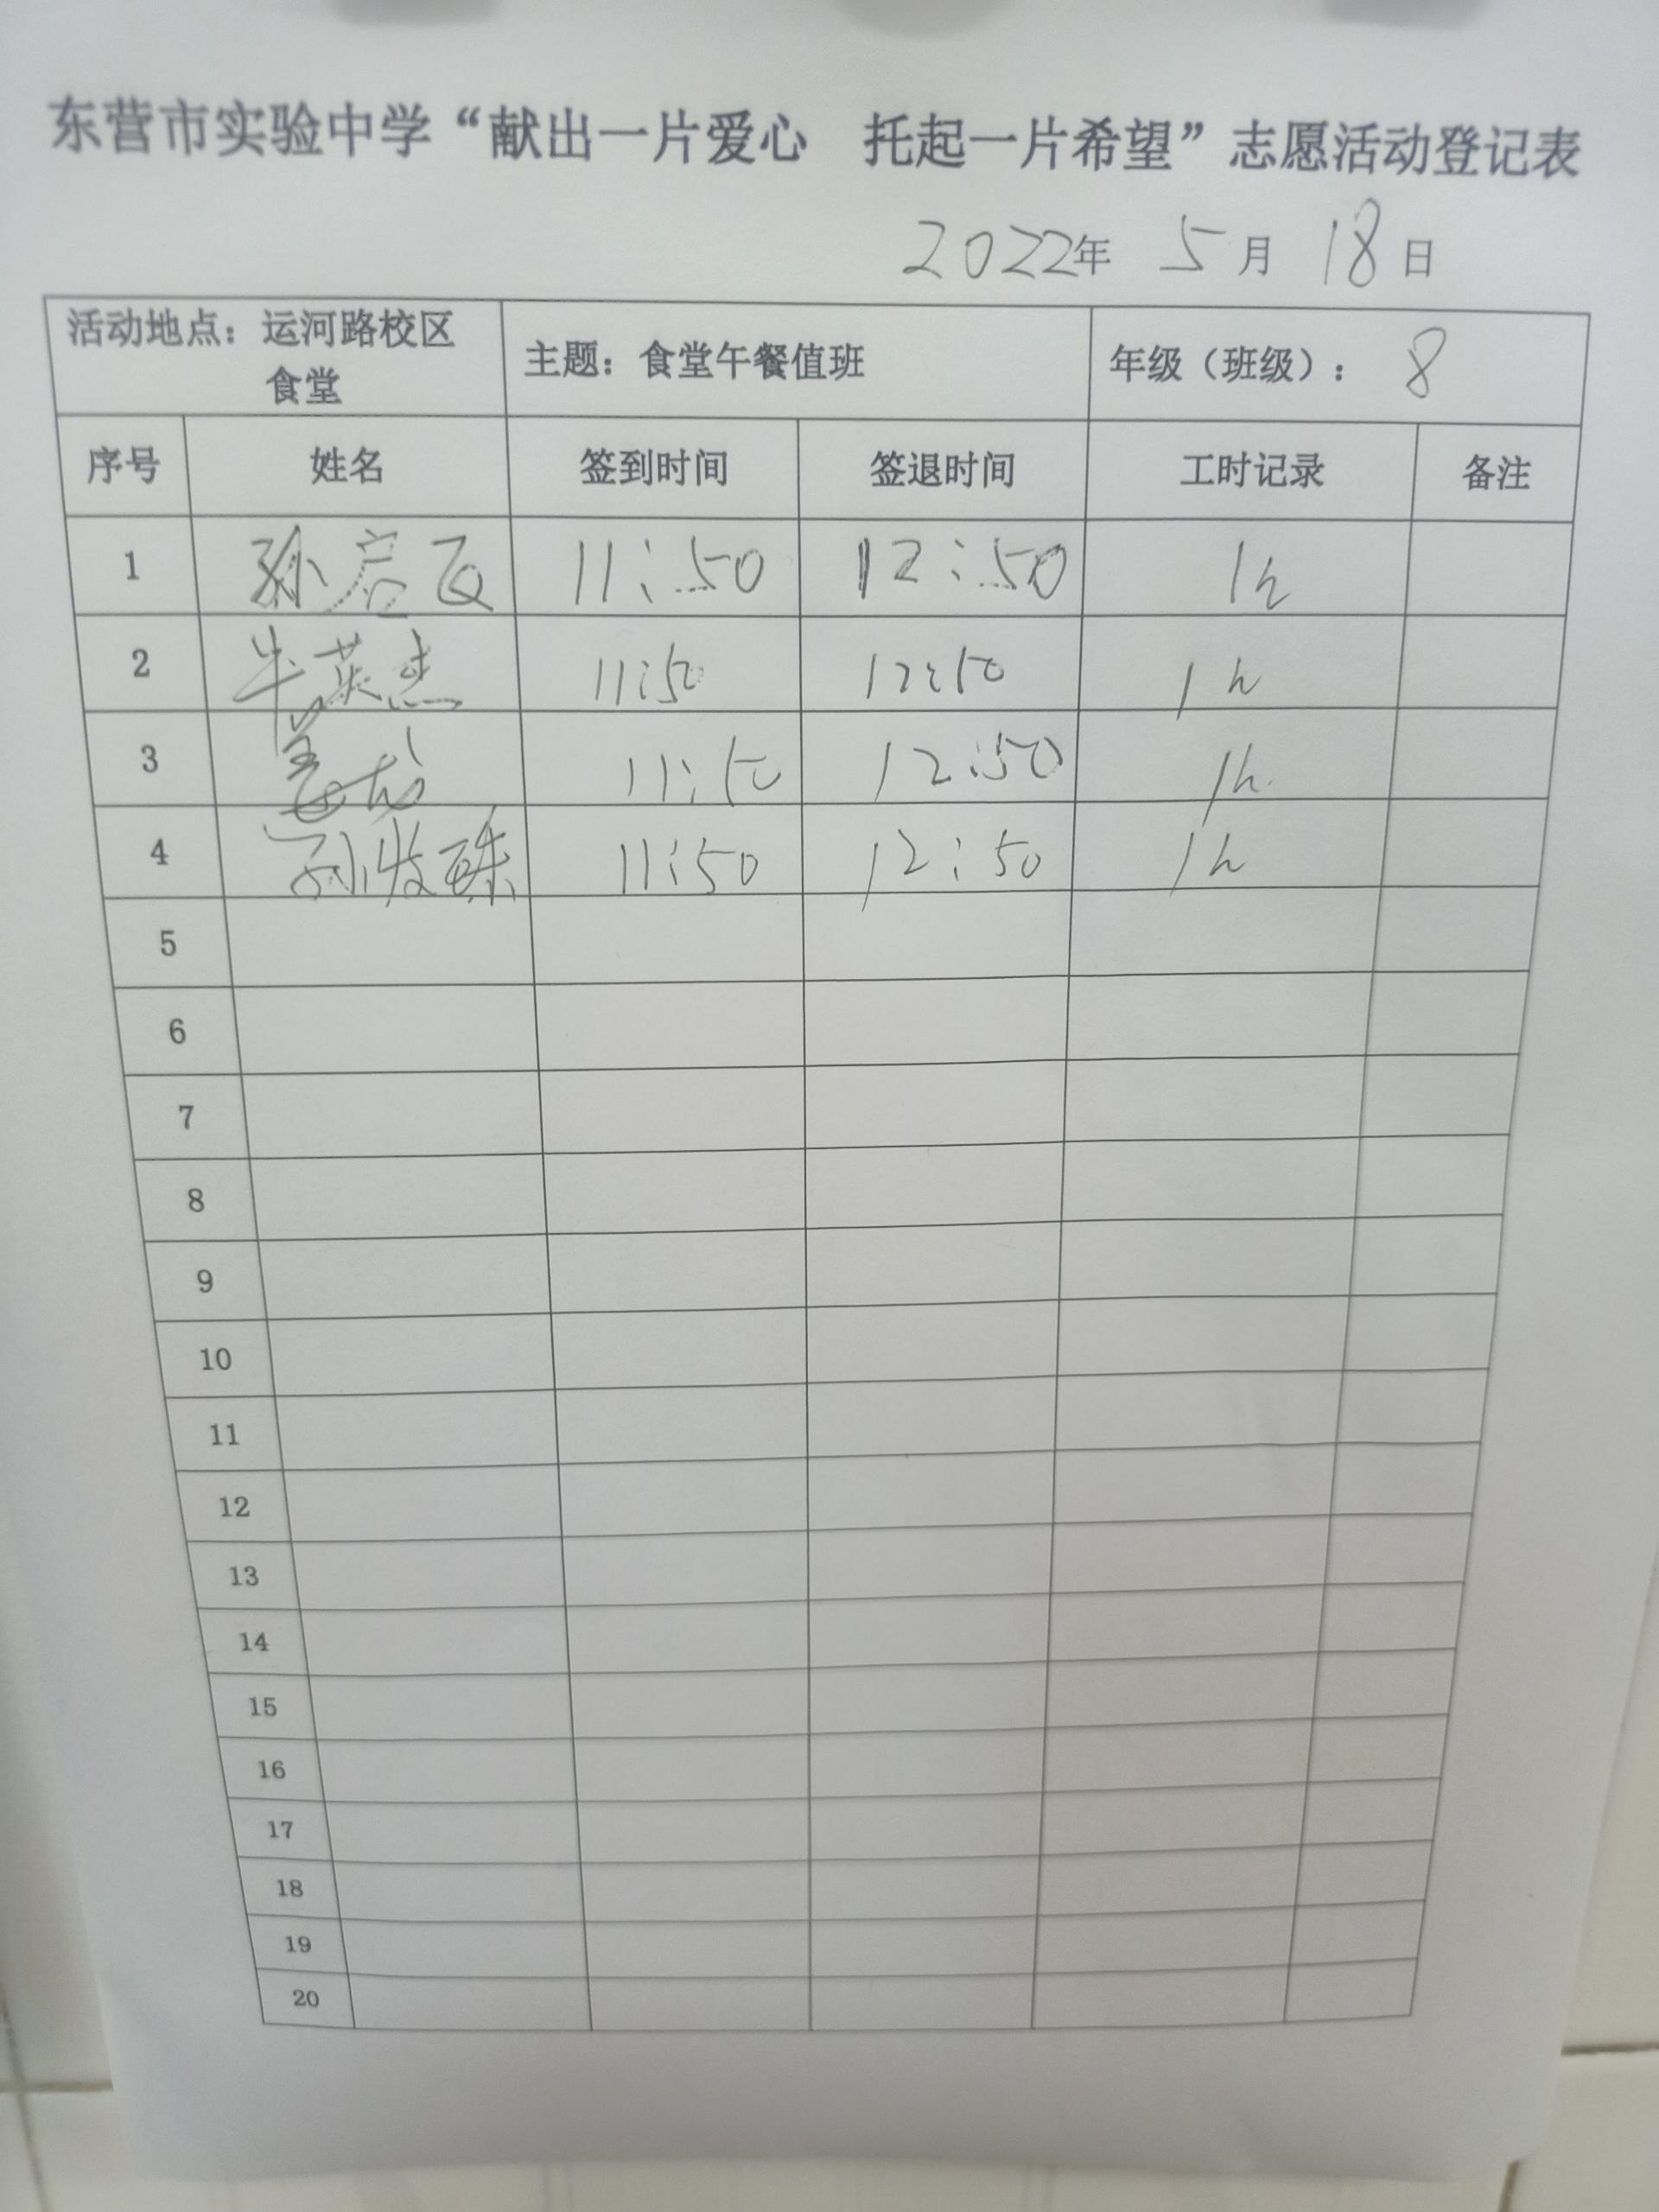 东营市实验中学“献出一片爱心 托起一片希望”志愿活动登记表
2022年 5月 18日
活动地点：运河路校区 主题：食堂午餐值班 年级（班级）：8
食堂
序号 姓名 签到时间 签退时间 工时记录 备注
1 孙 11:50 12:50 1h
2 牛英杰 11:50 12:50 1h
3 11:50 12:50 1h
4 孙 11:50 12:50 1h
5
6
7
8
9
10
11
12
13
14
15
16
17
18
19
20